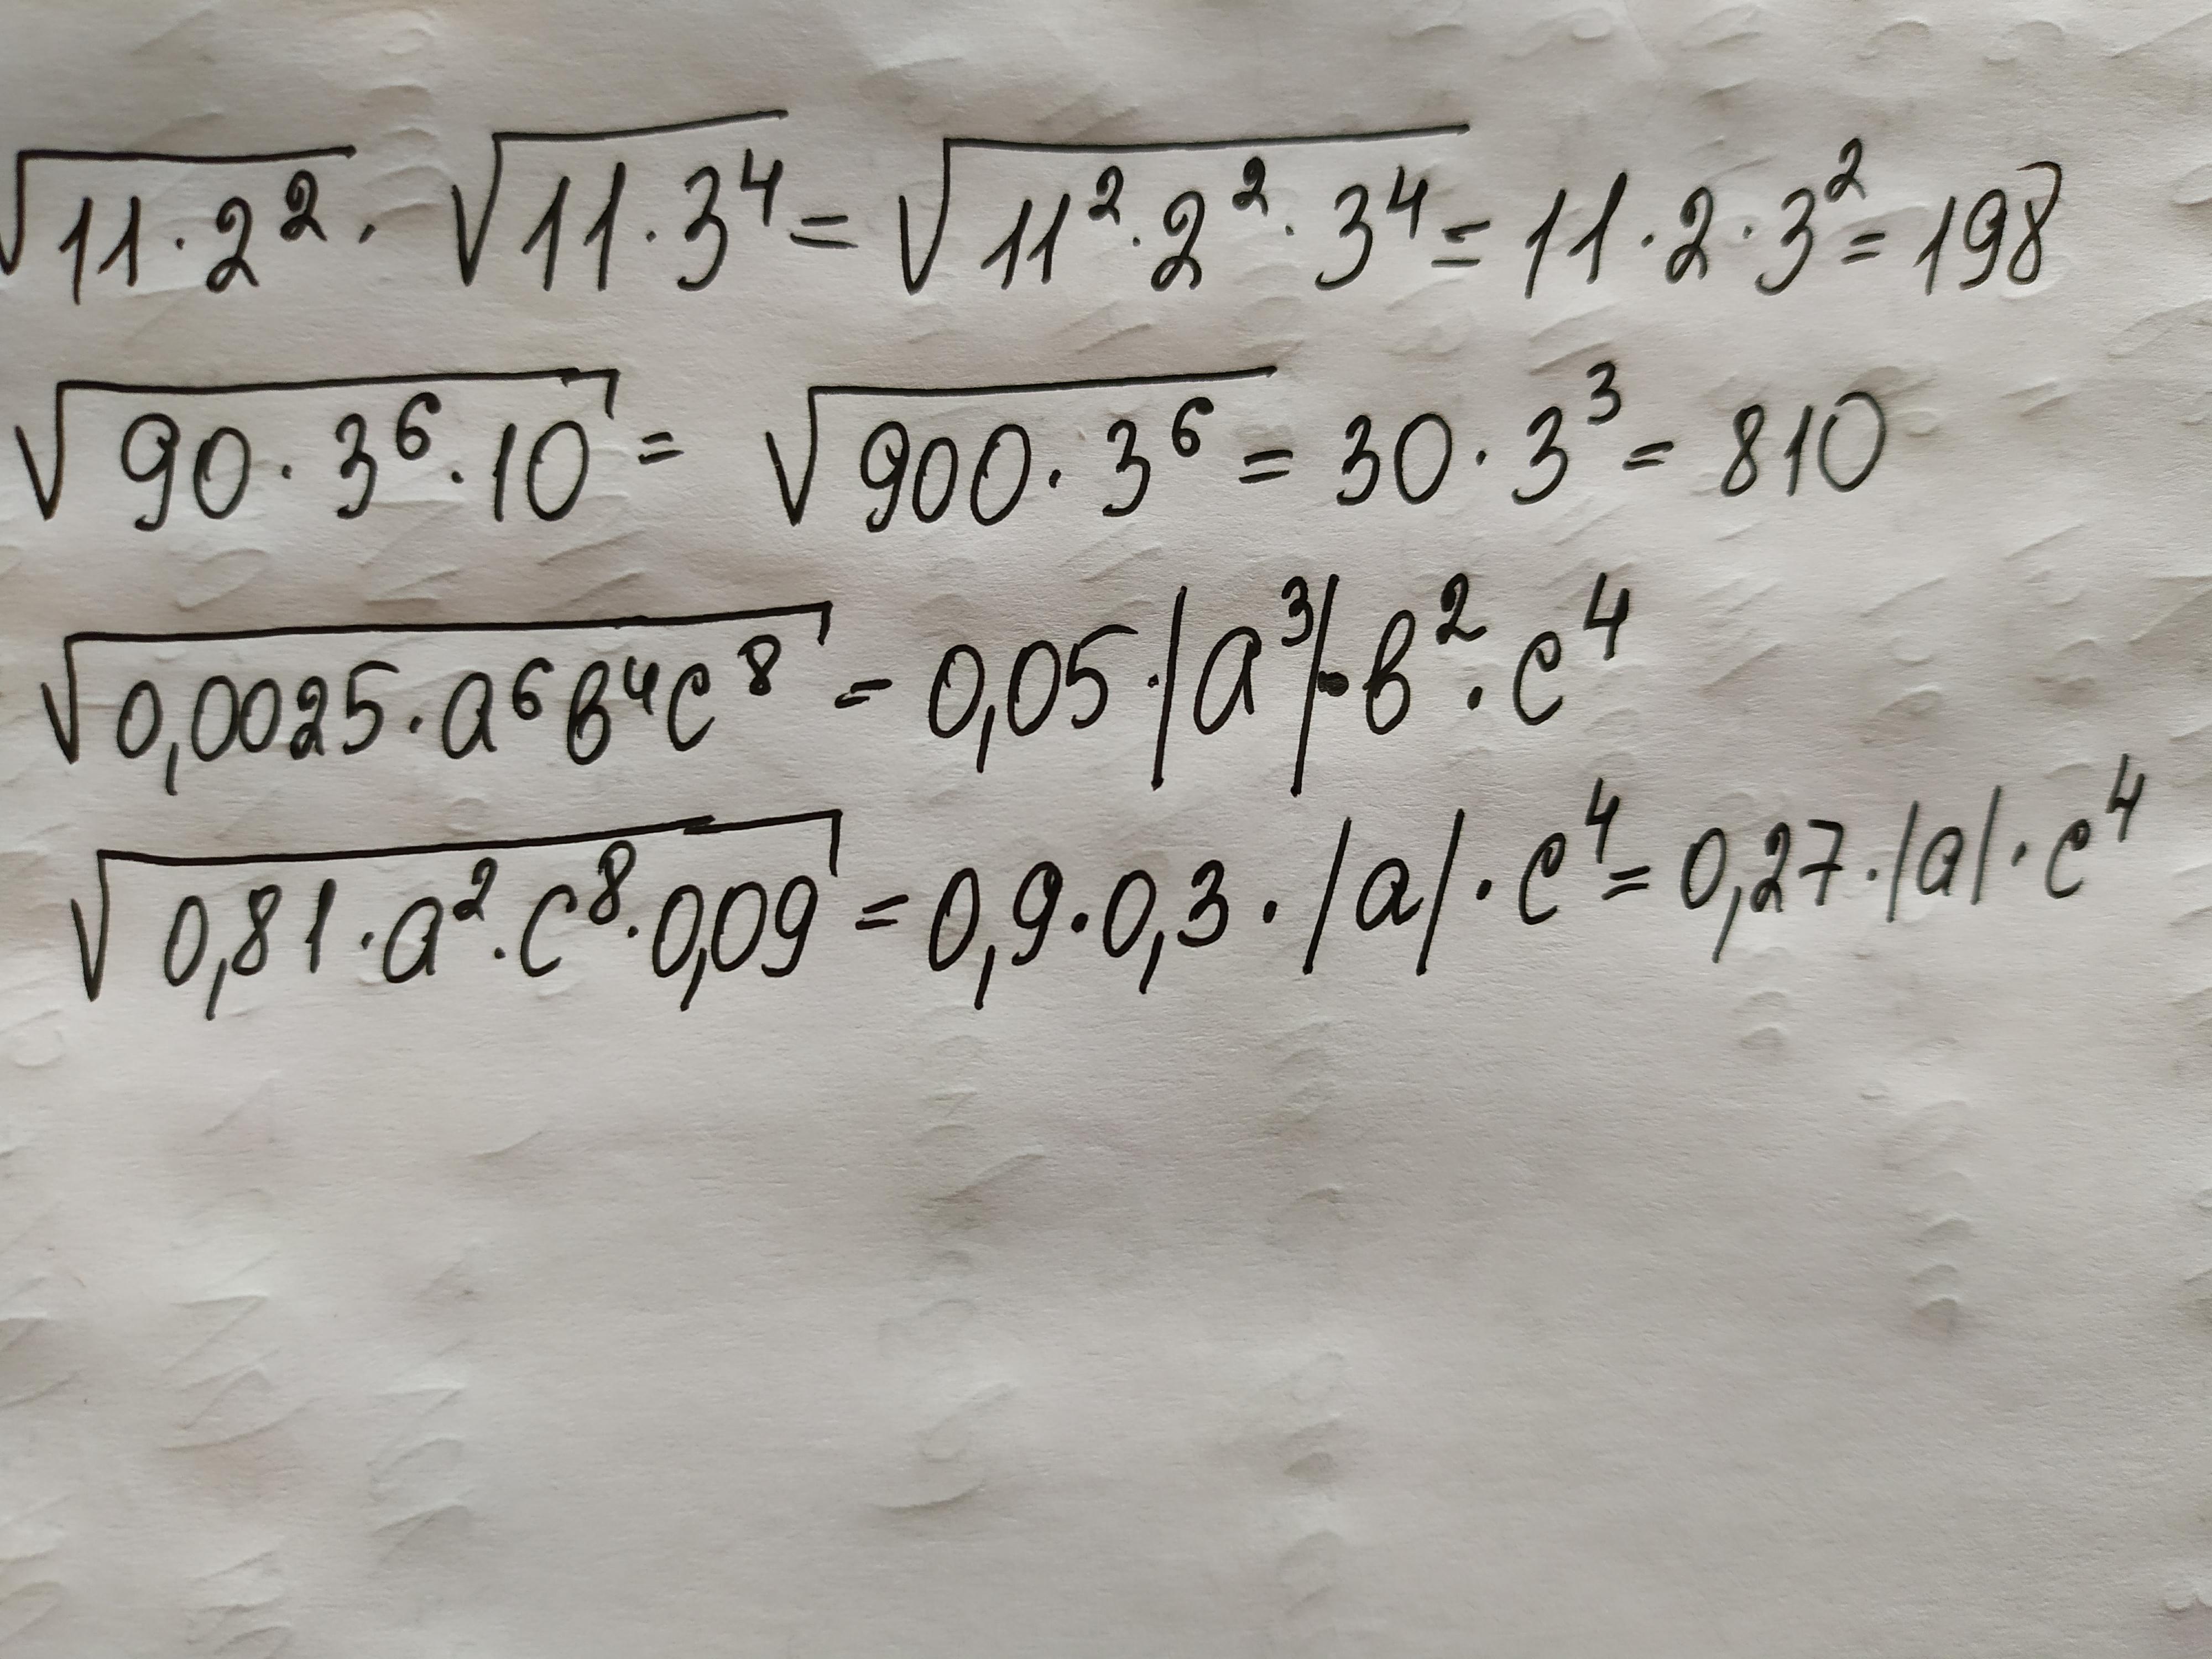 √11·2² · √11·3⁴ = √11²·2²·3⁴ = 11·2·3² = 198
√90·3⁶·10 = √900·3⁶ = 30·3³ = 810
√0,0025·a⁶в⁴c⁸ = 0,05·|a³|·в²·c⁴
√0,81·a²·c⁸·0,09 = 0,9·0,3·|a|·c⁴ = 0,27·|a|·c⁴